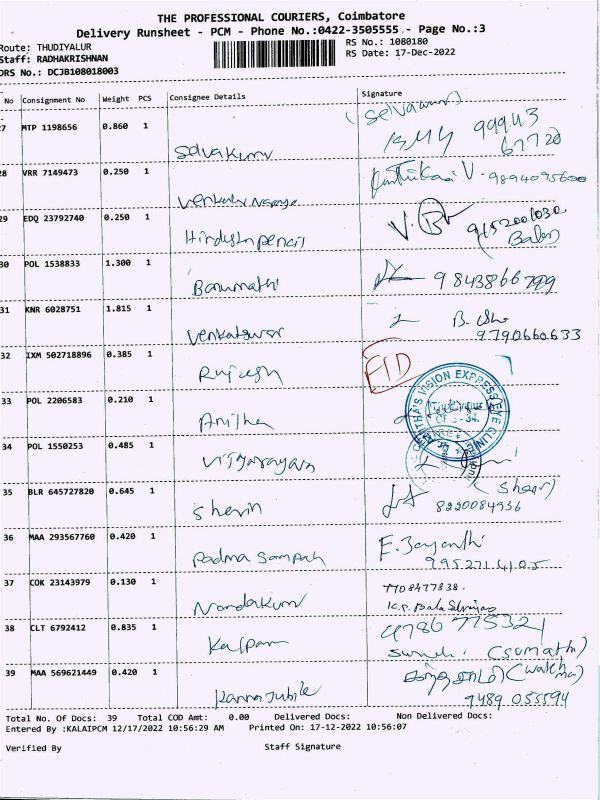 THE PROFESSIONAL COURIERS, Coimbatore
Delivery Runsheet - PCM - Phone No.:0422-3505555 - Page No.:3
Route: THUDIYALUR
RS No.: 1080180
Staff: RADHAKRISHNAN
RS Date: 17-Dec-2022
DRS No.: DCJB108018003
No Consignment No Weight PCS Consignee Details Signature
(Selvakumar)
27 MTP 1198656 0.860 1 Selvakumar 99943
67720
28 VRR 7149473 0.250 1 Venkata V. 9894095600
29 EDQ 23792740 0.250 1 Hindustn pencis V.
(Balan)
30 POL 1538833 1.300 1 Banumathi 9843866799
31 KNR 6028751 1.815 1 Venkateswar B. Usha
9790660633
32 IXM 502718896 0.385 1 Rajesh
33 POL 2206583 0.210 1 Anitha
VISION EXPRESS EYE CLINIC
34 POL 1550253 0.485 1
35 BLR 645727820 0.645 1 Sherin
8220084936
36 MAA 293567760 0.420 1 Padma Sampath F. Jayanthi
37 COK 23143979 0.130 1 Nandakumr 7708477838.
K.P. Bala
38 CLT 6792412 0.835 1 Kalpana
(Sumathi)
39 MAA 569621449 0.420 1 Kanna Jubile (watch man)
9489 055594
Total No. Of Docs: 39 Total COD Amt: 0.00 Delivered Docs: Non Delivered Docs:
Entered By :KALAIPCM 12/17/2022 10:56:29 AM Printed On: 17-12-2022 10:56:07
Verified By Staff Signature